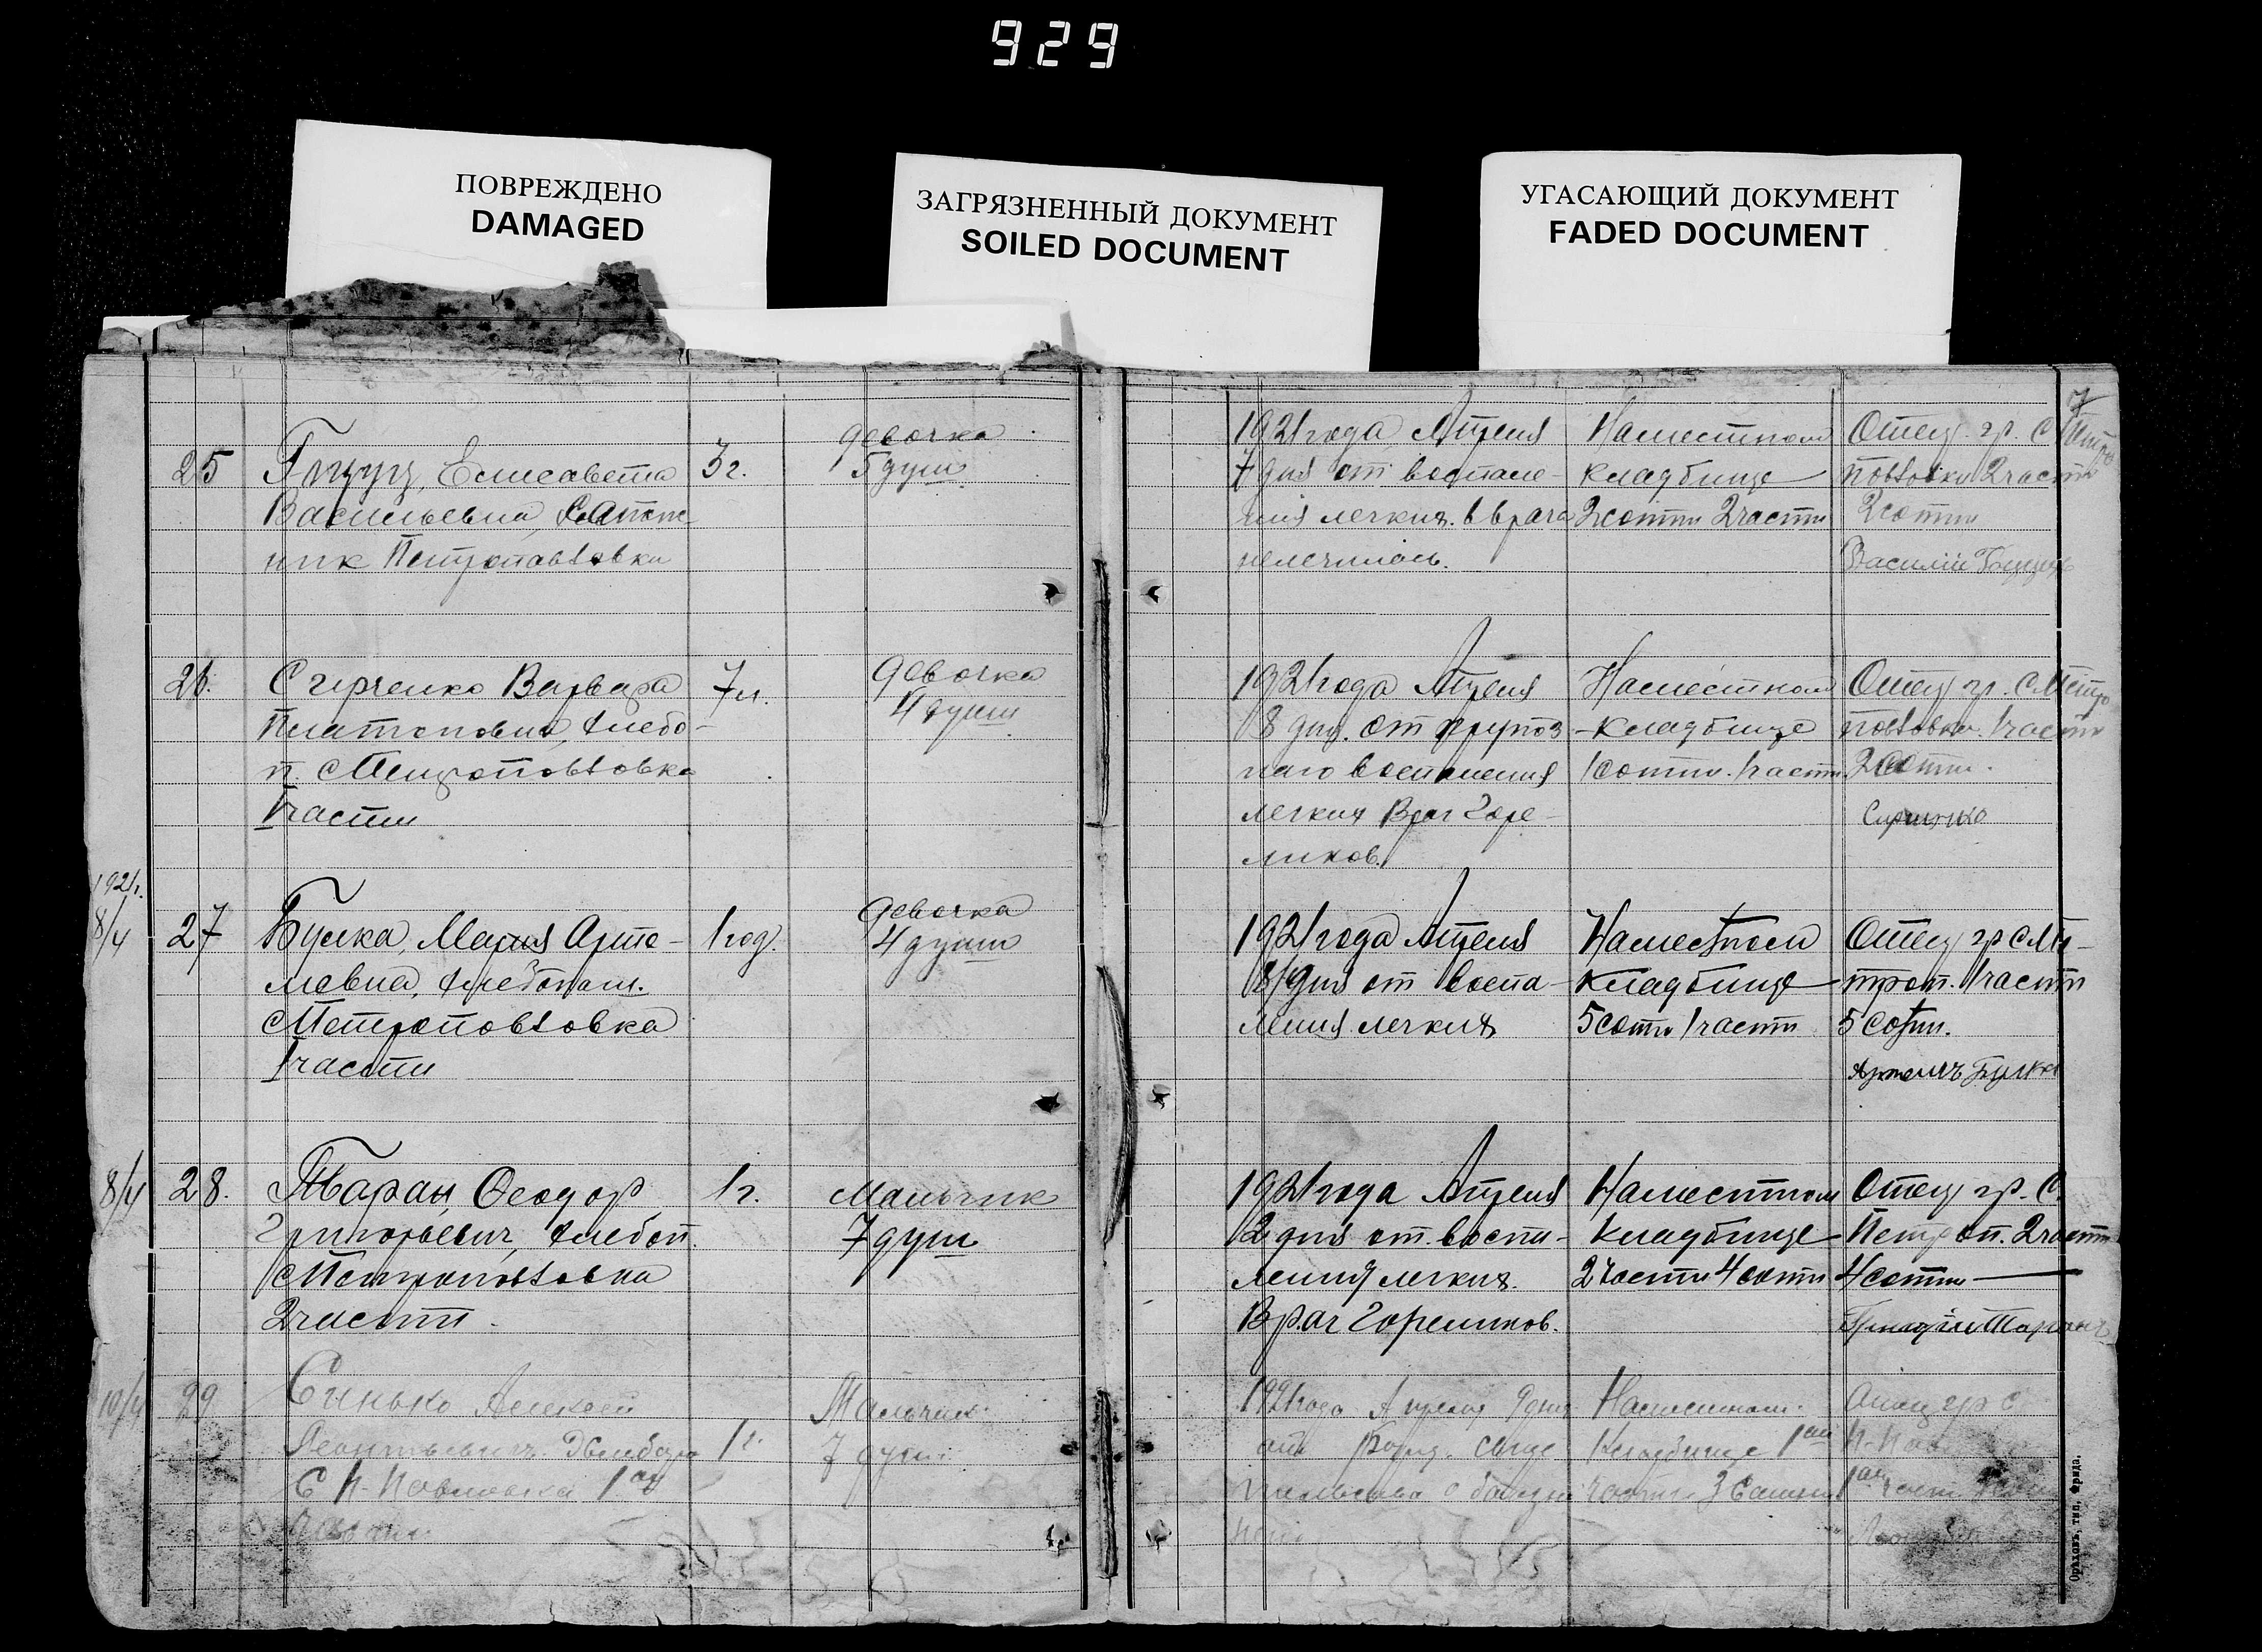 929
ПОВРЕЖДЕНО
DAMAGED
ЗАГРЯЗНЕННЫЙ ДОКУМЕНТ
SOILED DOCUMENT
УГАСАЮЩИЙ ДОКУМЕНТ
FADED DOCUMENT
7
25
Елисавета
Васильевна,
ник Петропавловки
3 г.
девочка
5 душ
1921 года Апреля
7 дня от воспале-
ния легких. в врача
нелечилась.
На местном
кладбище
2 сотни 2 части
Отец гр. с Петро
павловки 2 части
2 сотни
Василий
26.
Сгирченко Варвара
Платоновна, хлебо-
п. с Петропавловка
1 части
7 л.
девочка
4 души
1921 года Апреля
8 дня. от крупоз
наго воспаления
легких Врач Горе-
ликов.
На местном
кладбище
1 сотни. 1 части
Отец гр. с Петро
павловки. 1 части
2 сотни.
1921 г.
8/4
27
Булка, Мария Арте-
мевна, хлебопаш.
с Петропавловка
1 части
1 год.
девочка
4 душ
1921 года Апреля
8 дня от воспа-
ления легких
На местном
кладбище
5 сотни 1 части
Отец гр с Пе-
троп. 1 части
5 сотни.
Артемъ Булка
8/4
28.
Таран, Феодор
Григорьевич, хлебоп.
с Петропавловка
2 части.
1 г.
Мальчик
7 душ
1921 года Апреля
2 дня от воспа-
ления легких.
Врач Гореликов.
На местном
кладбище
2 части 4 сотни
Отец гр. С.
Петроп. 2 части
4 сотни
Таранъ
10/4
29
Синько Алексей
Леонтьевичъ
с П-Павловка 1ай
части
1 г.
Мальчик
7 душ.
1921 года Апреля 9 дня
На местном
Кладбище 1ай
части 3 Сотни
Отец гр с
П-Пав
1ай части
Орѣховъ, тип. Фрида.